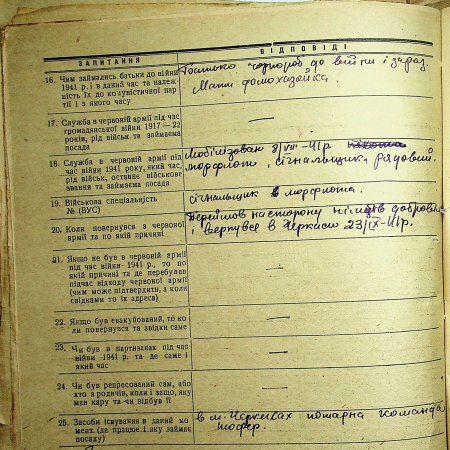 ЗАПИТАННЯ
ВІДПОВІДІ
16. Чим займались батьки до війни
1941 р. і в даний час та належ-
ність їх до комуністичної пар-
тії і з якого часу
Батько чорнороб до війни і зараз.
Мати домохазяйка.
17. Служба в червоній армії під час
громадянської війни 1917—22
років, рід військ та займаєма
посада
—
18. Служба в червоній армії під
час війни 1941 року, який час,
рід військ, останнє військове
звання та займаєма посада
Мобілізован 8/VIII-41р
морфлот, сігнальщик, рядовий.
19. Військова спеціальність
№ (ВУС)
сігнальщик в морфлоте.
20. Коли повернувся з червоної
армії та по якій причині
Перейшов на сторону німців добровіл.
і вернувся в Черкаси 23/IX-41р.
21. Якщо не був в червоній армії
під час війни 1941 р., то по
якій причині та де перебував
підчас відходу червоної армії
(чим може підтвердити, а коли
свідками то їх адреса)
—
22. Якщо був евакуйований, то ко-
ли повернувся та звідки саме
—
23. Чи був в партизанах під час
війни 1941 р. та де саме і
який час
—
24. Чи був репресований сам, або
хто з родичів, коли і защо, яку
мав кару та чи відбув її
—
25. Засоби існування в даний мо-
мент. (де працює і яку займає
посаду)
в м. Черкасах пожарна команда
шофер.